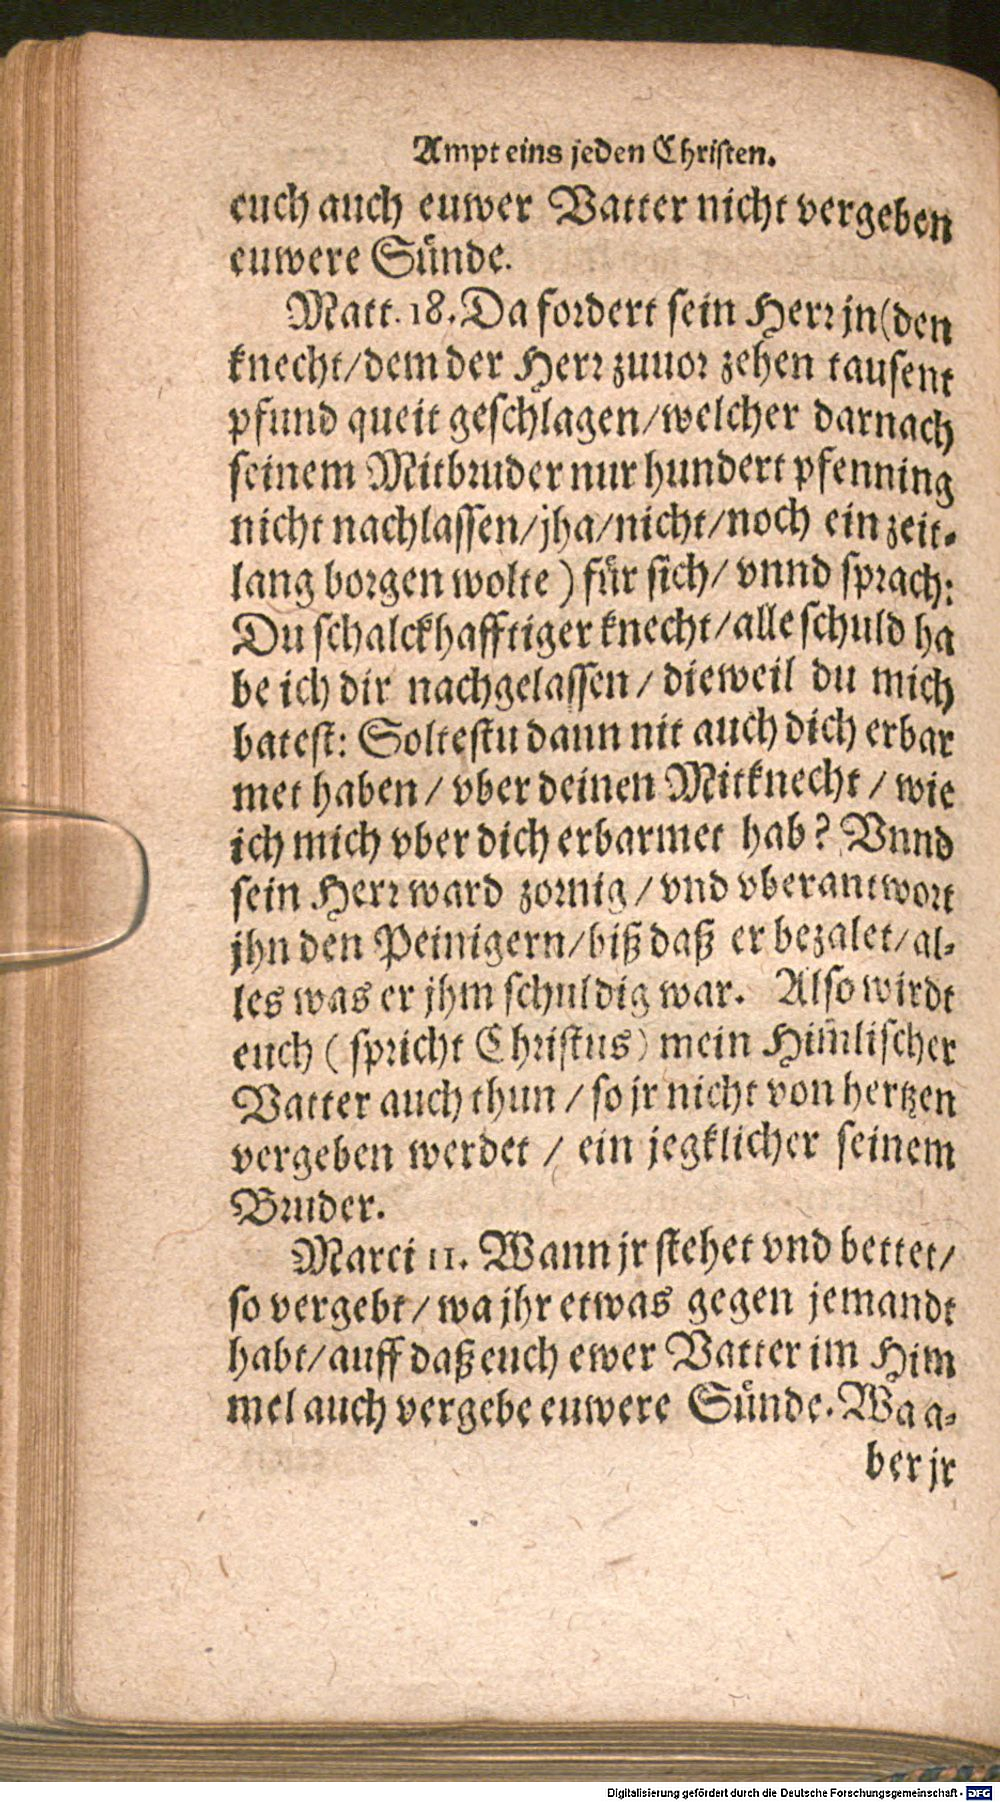 Ampt eins jeden Christen.
euch auch euwer Vatter nicht vergeben
euwere Sünde.
Matt. 18. Da fordert sein Herr jn (den
knecht/ dem der Herr zuuor zehen tausent
pfund queit geschlagen/ welcher darnach
seinem Mitbruder nur hundert pfenning
nicht nachlassen/ jha/ nicht/ noch ein zeit-
lang borgen wolte) für sich/ vnnd sprach:
Du schalckhafftiger knecht/ alle schuld ha
be ich dir nachgelassen/ dieweil du mich
batest: Soltestu dann nit auch dich erbar
met haben/ vber deinen Mitknecht/ wie
ich mich vber dich erbarmet hab? Vnnd
sein Herr ward zornig/ vnd vberantwort
jhn den Peinigern/ biß daß er bezalet/ al-
les was er jhm schuldig war. Also wirdt
euch (spricht Christus) mein Him̃lischer
Vatter auch thun/ so jr nicht von hertzen
vergeben werdet/ ein jegklicher seinem
Bruder.
Marci 11. Wann jr stehet vnd bettet/
so vergebt/ wa jhr etwas gegen jemandt
habt/ auff daß euch ewer Vatter im Him
mel auch vergebe euwere Sünde. Wa a-
ber jr
Digitalisierung gefördert durch die Deutsche Forschungsgemeinschaft - DFG